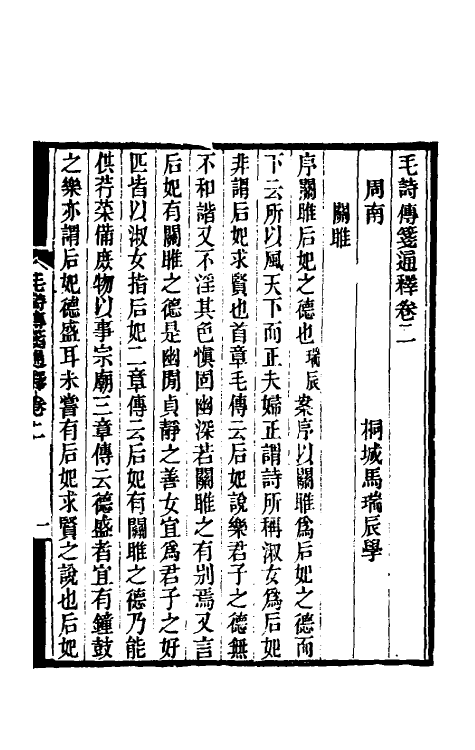 毛詩傳箋通釋卷二
周南
桐城馬瑞辰學
關雎
序關雎后妃之德也瑞辰案序以關雎爲后妃之德而
下云所以風天下而正夫婦正謂詩所稱淑女爲后妃
非謂后妃求賢也首章毛傳云后妃說樂君子之德無
不和諧又不淫其色愼固幽深若關雎之有別焉又言
后妃有關雎之德是幽閒貞靜之善女宜爲君子之好
匹皆以淑女指后妃二章傳云后妃有關雎之德乃能
供荇菜備庶物以事宗廟三章傳云德盛者宜有鐘鼓
之樂亦謂后妃德盛耳未嘗有后妃求賢之說也后妃
毛詩傳箋通釋卷二
一